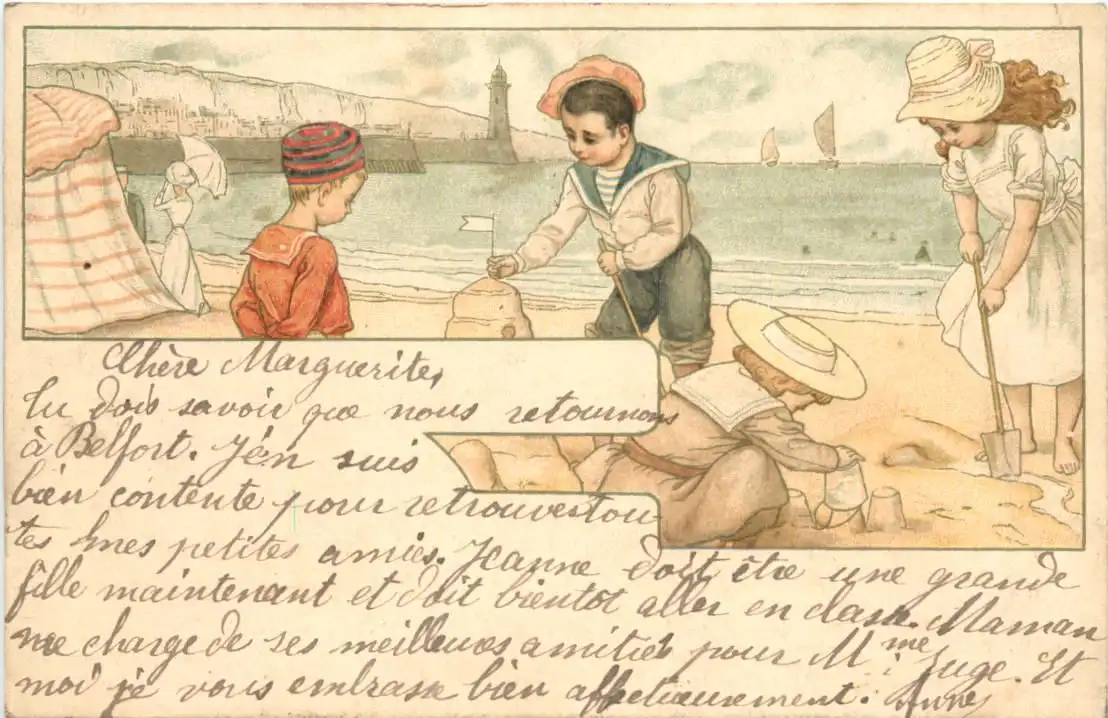 Chère Marguerite,
tu dois savoir que nous retournons
à Belfort. J'en suis
bien contente pour retrouver tou
tes mes petites amies. Jeanne doit être une grande
fille maintenant et doit bientot aller en classe. Maman
me charge de ses meilleures amitiés pour Mme Juge. Et
moi je vous embrasse bien affectieusement. Anne